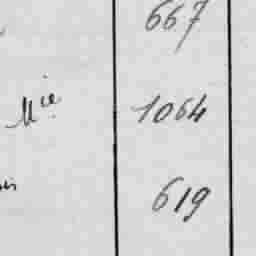 667
Mie 1064
619